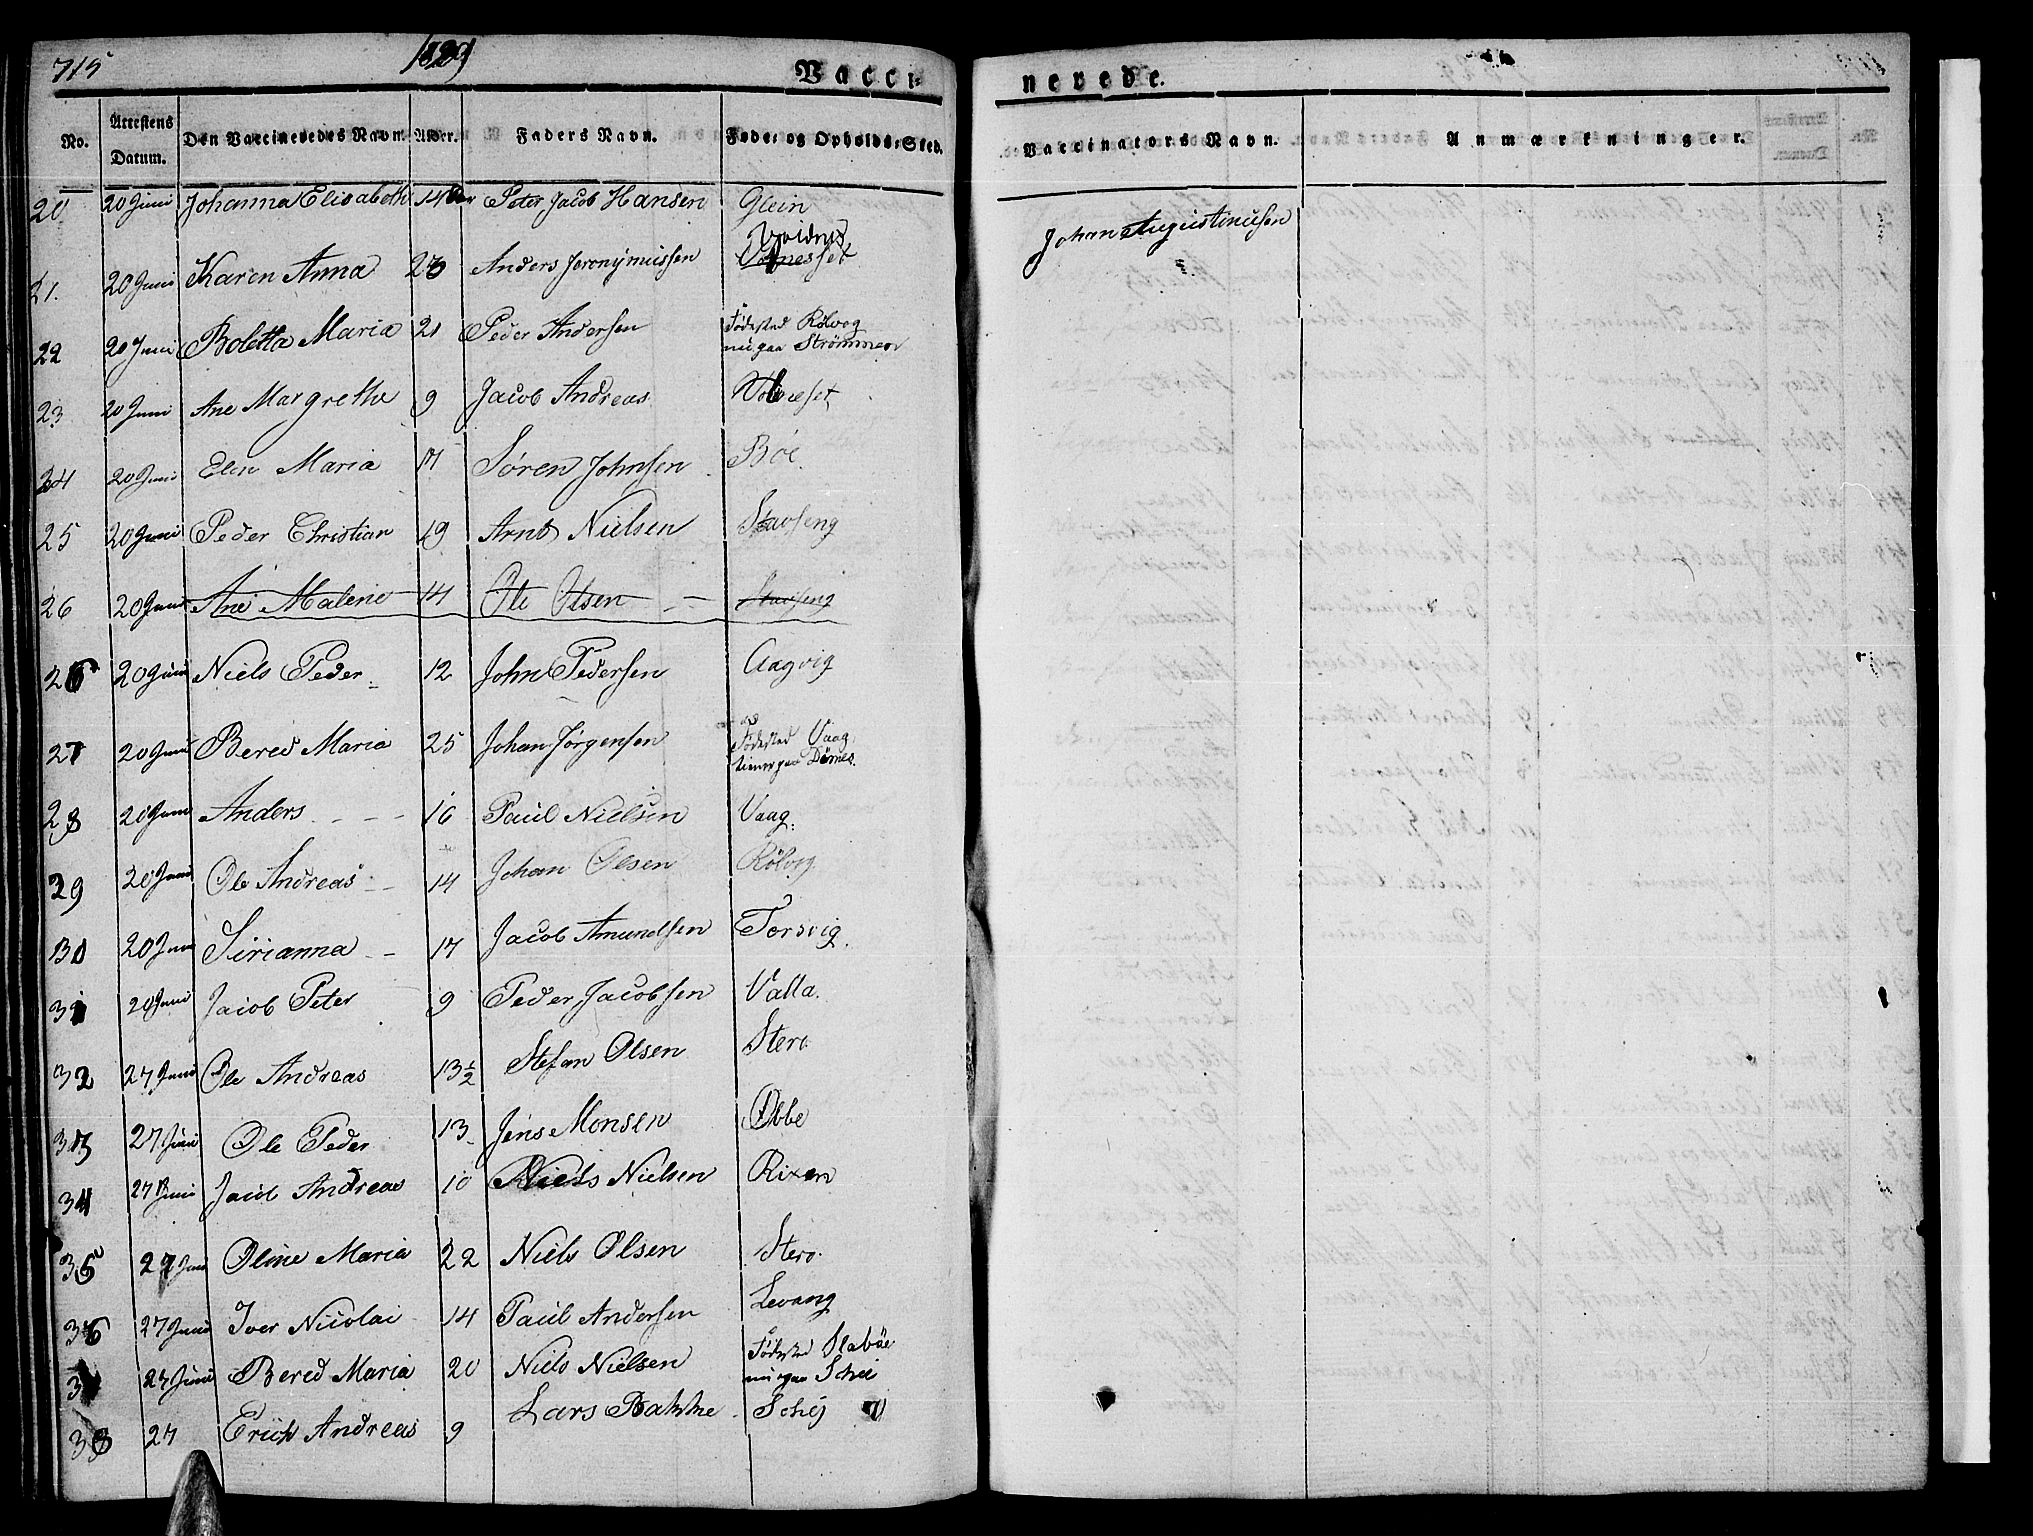 715
1829
Vacci-
No.
Attestens Datum.
Den Vaccineredes Navn.
Alder.
Faders Navn.
Føde- og Opholds-Sted.
20 20 Juni Johanna Elisabeth 14 Peter Jacob Hansen Glein
21. 20 Juni Karen Anna 23 Anders Jeronymussen
22 20 Juni Boletta Maria 21 Peder Andersen Fødested Rølvog
nu paa Strømmen
23 20 Juni Ane Margrethe 9 Jacob Andreas
24 20 Juni Elen Maria 17 Søren Johnsen Böe.
25 20 Juni Peder Christian 19 Arnt Nielsen Stavseng
26 20 Juni Ane Malene 14 Ole Olsen Stavseng
26 20 Juni Niels Peder 12 John Pedersen Aagvig
27 20 Juni Bered Maria 25 Johan Jørgensen Fødested Vaag
tiener paa Dønnes.
28 20 Juni Anders 16 Paul Nielsen Vaag.
29 20 Juni Ole Andreas 14 Johan Olsen Rölvig.
30 20 Juni Sirianna 17 Jacob Amundsen Torsvig.
31 20 Juni Jacob Peter 9 Peder Jacobsen Valla.
32 27 Juni Ole Andreas 13½ Stefan Olsen Stero
33 27 Juni Ole Peder 13 Jens Monsen Øbbe
34 27 Juni Jacob Andreas 10 Niels Nielsen
35 27 Juni Oline Maria 22 Niels Olsen Stero.
36 27 Juni Iver Nicolai 14 Paul Andersen Levang
27 Juni Bered Maria 20 Niels Nielsen Fødested Slabøe
nu paa Schei
38 27 Erich Andreas 9 Lars Bakke Schej
nerede.
Vaccinators Navn.
Anmærkninger.
Johan Augustinusen